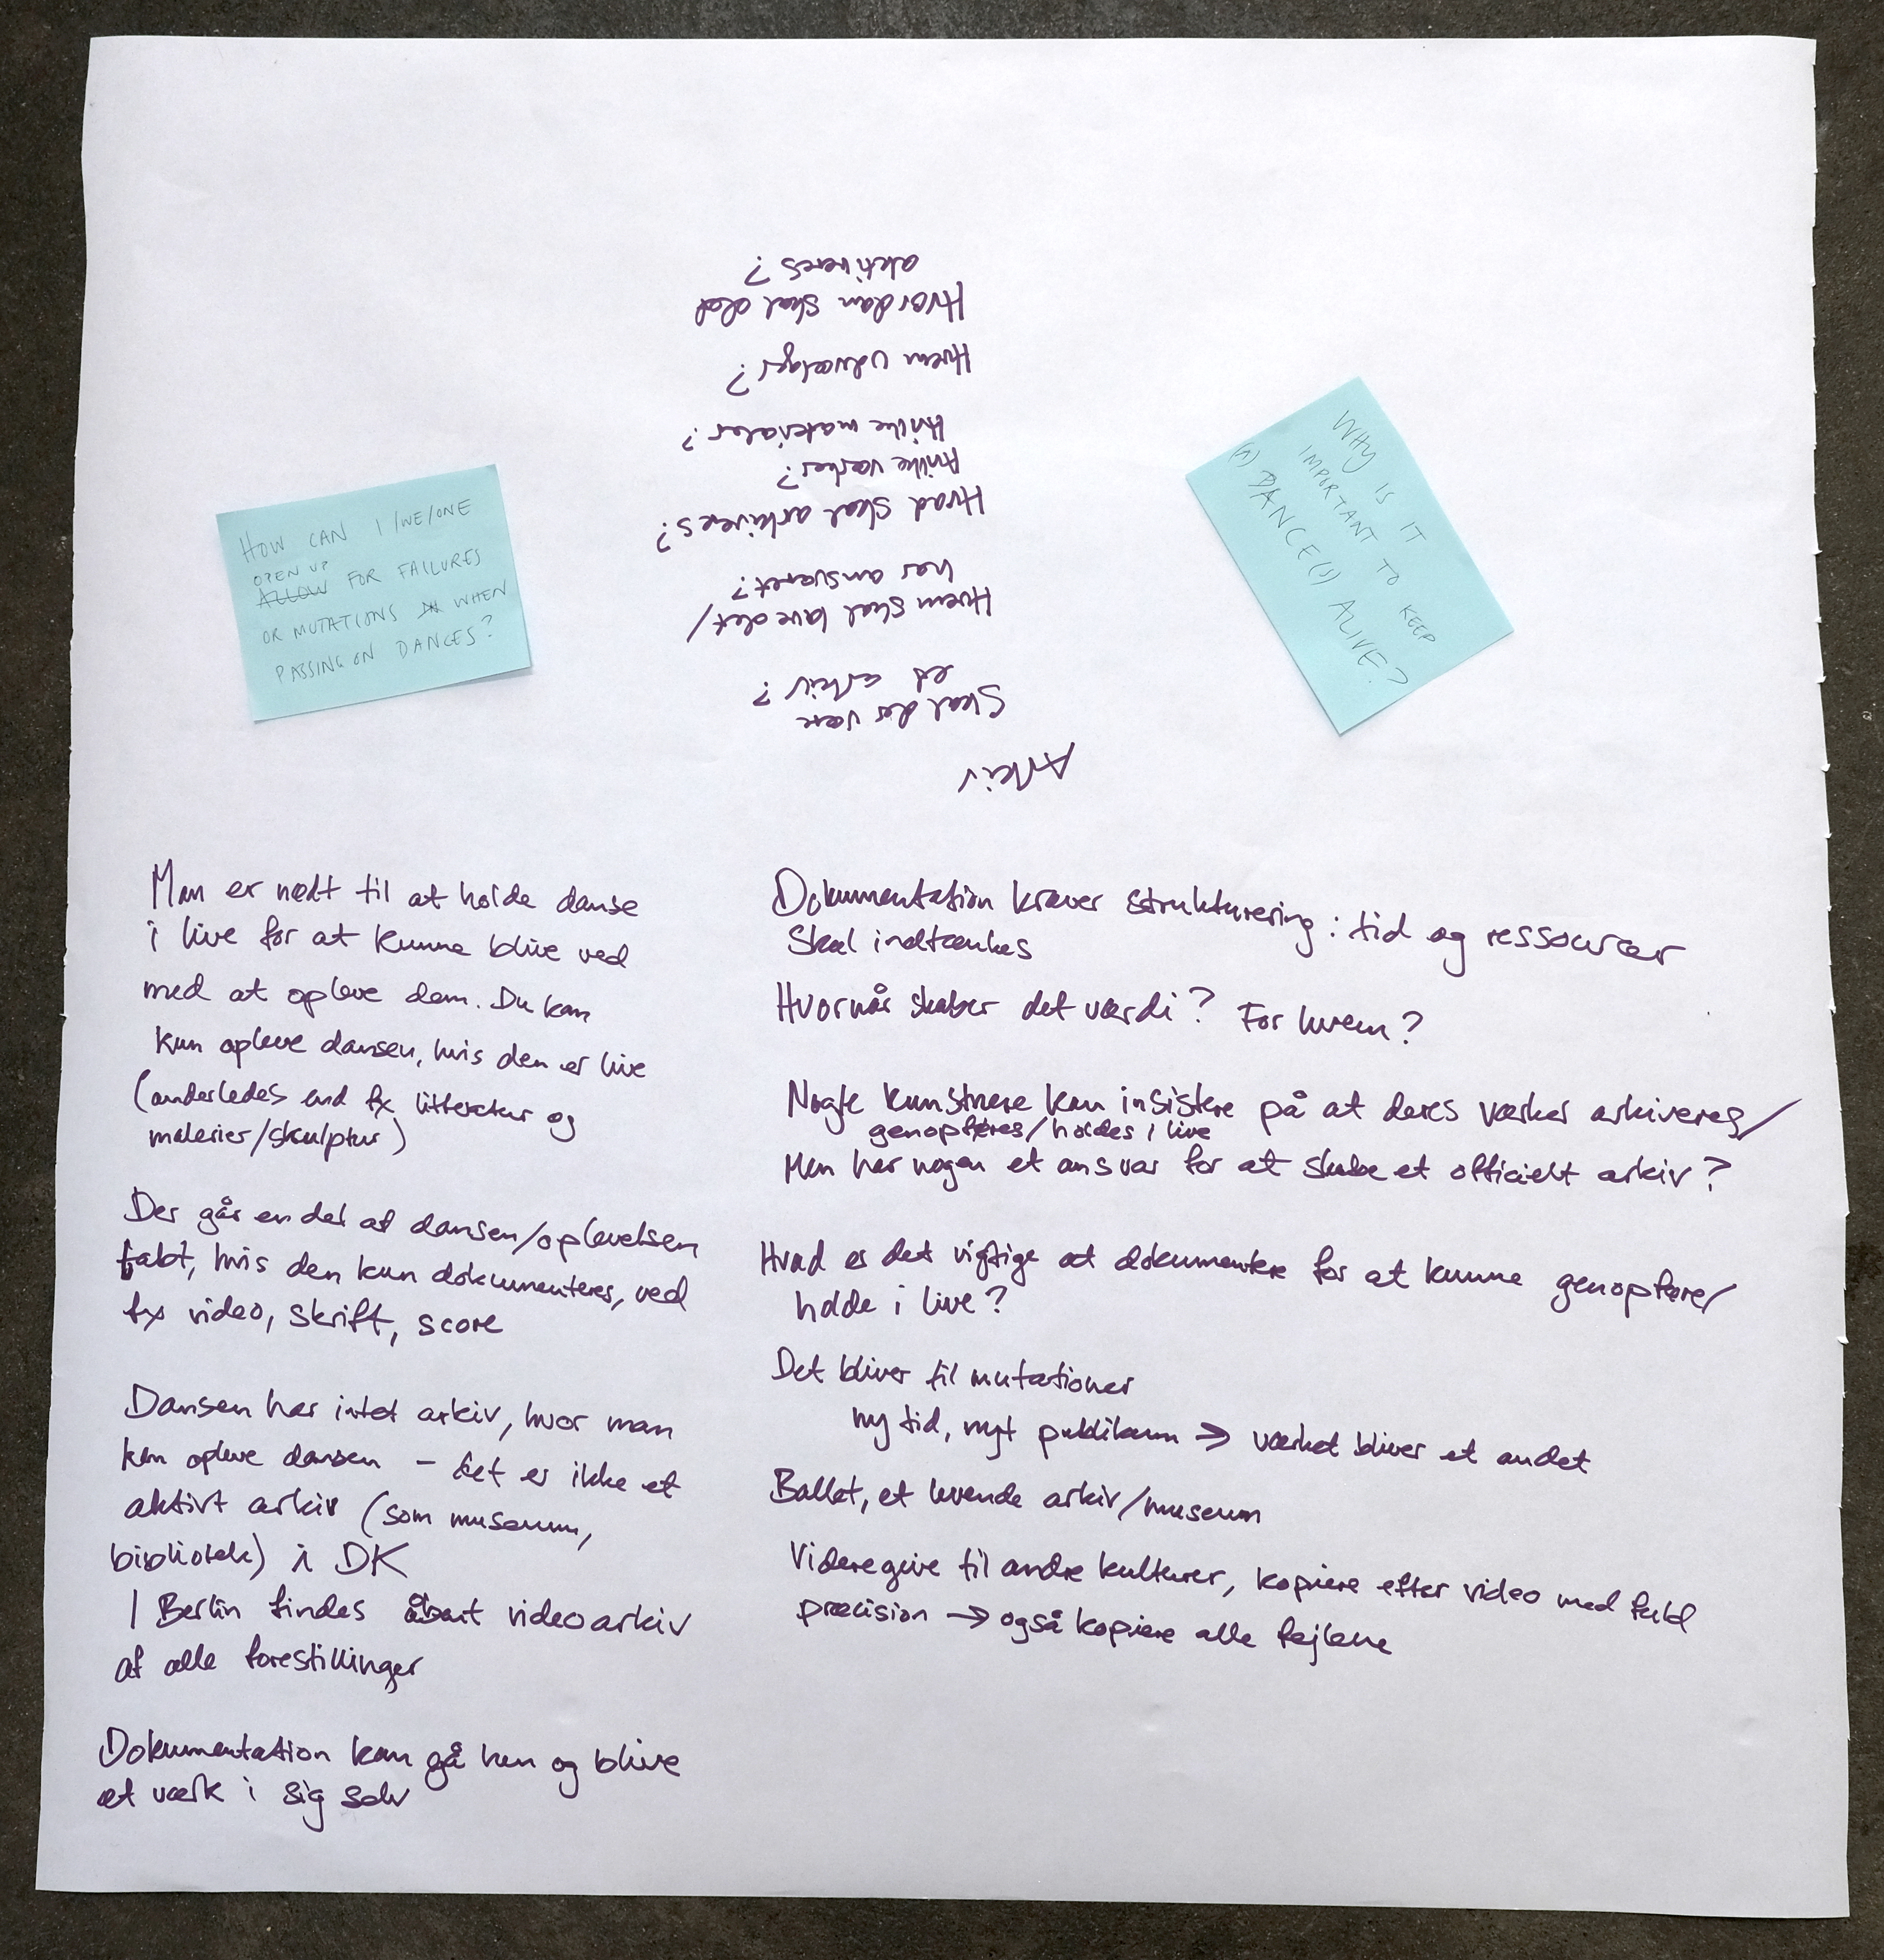 HOW CAN I/WE/ONE
OPEN UP
ALLOW FOR FAILURES
OR MUTATIONS IN WHEN
PASSING ON DANCES?
WHY IS IT
IMPORTANT TO KEEP
(A) DANCE(S) ALIVE?
Arkiv
Skal der være
et arkiv?
Hvem skal lave det/
har ansvaret?
Hvad skal arkiveres?
Hvilke værker?
Hvilke materialer?
Hvem udvælger?
Hvordan skal det
aktiveres?
Man er nødt til at holde danse
i live for at kunne blive ved
med at opleve dem. Du kan
kun opleve dansen, hvis den er live
(anderledes end fx litteratur og
malerier/skulptur)
Der går en del af dansen/oplevelsen
tabt, hvis den kun dokumenteres, ved
fx video, skrift, score
Dansen har intet arkiv, hvor man
kan opleve dansen - det er ikke et
aktivt arkiv (som museum,
bibliotek) i DK
I Berlin findes åbent videoarkiv
af alle forestillinger
Dokumentation kan gå hen og blive
et værk i sig selv
Dokumentation kræver strukturering: tid og ressourcer
Skal indtænkes
Hvornår skaber det værdi? For hvem?
Nogle kunstnere kan insistere på at deres værker arkiveres/
genopføres/holdes i live
Men har nogen et ansvar for at skabe et officielt arkiv?
Hvad er det vigtige at dokumentere for at kunne genopføre/
holde i live?
Det bliver til mutationer
ny tid, nyt publikum → værket bliver et andet
Ballet, et levende arkiv/museum
Videregive til andre kulturer, kopiere efter video med fuld
præcision → også kopiere alle fejlene